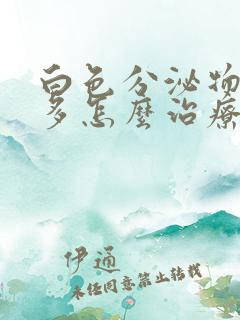 白色分泌物
多怎麼治療
伊通
未经同意禁止转载